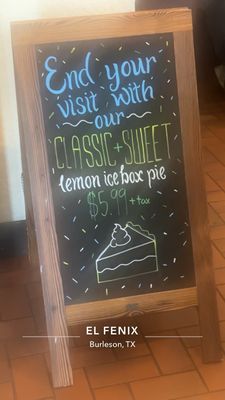 End your
visit with
our
CLASSIC + SWEET
lemon ice box pie
$5.99 + tax
EL FENIX
Burleson, TX